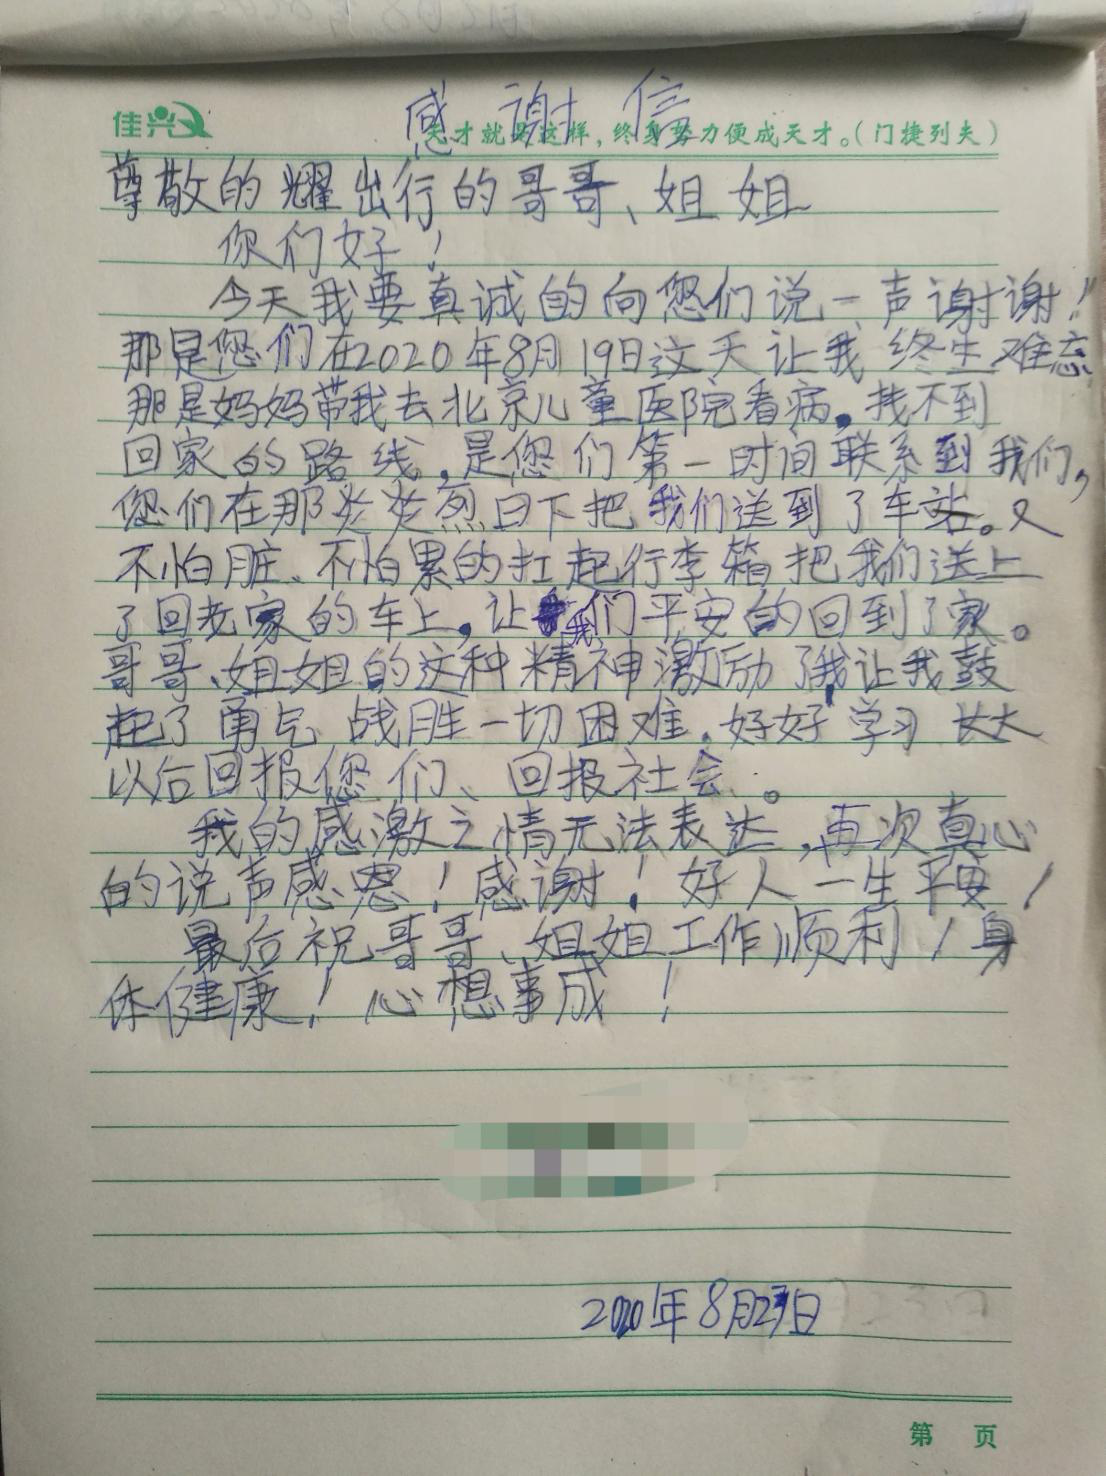 感谢信
佳兴 天才就是这样，终身努力便成天才。（门捷列夫）
尊敬的耀出行的哥哥、姐姐
你们好！
今天我要真诚的向您们说一声谢谢！
那是您们在2020年8月19日这天让我终生难忘
那是妈妈带我去北京儿童医院看病。找不到
回家的路线，是您们第一时间联系到我们，
您们在那炎炎烈日下把我们送到了车站。又
不怕脏、不怕累的扛起行李箱把我们送上
了回老家的车上。让我们平安的回到了家。
哥哥、姐姐的这种精神激励了我让我鼓
起了勇气 战胜一切困难。好好学习 长大
以后回报您们、回报社会。
我的感激之情无法表达，再次真心
的说声感恩！感谢！好人一生平安！
最后祝哥哥、姐姐工作顺利！身
体健康！心想事成！
2020年8月23日
第 页